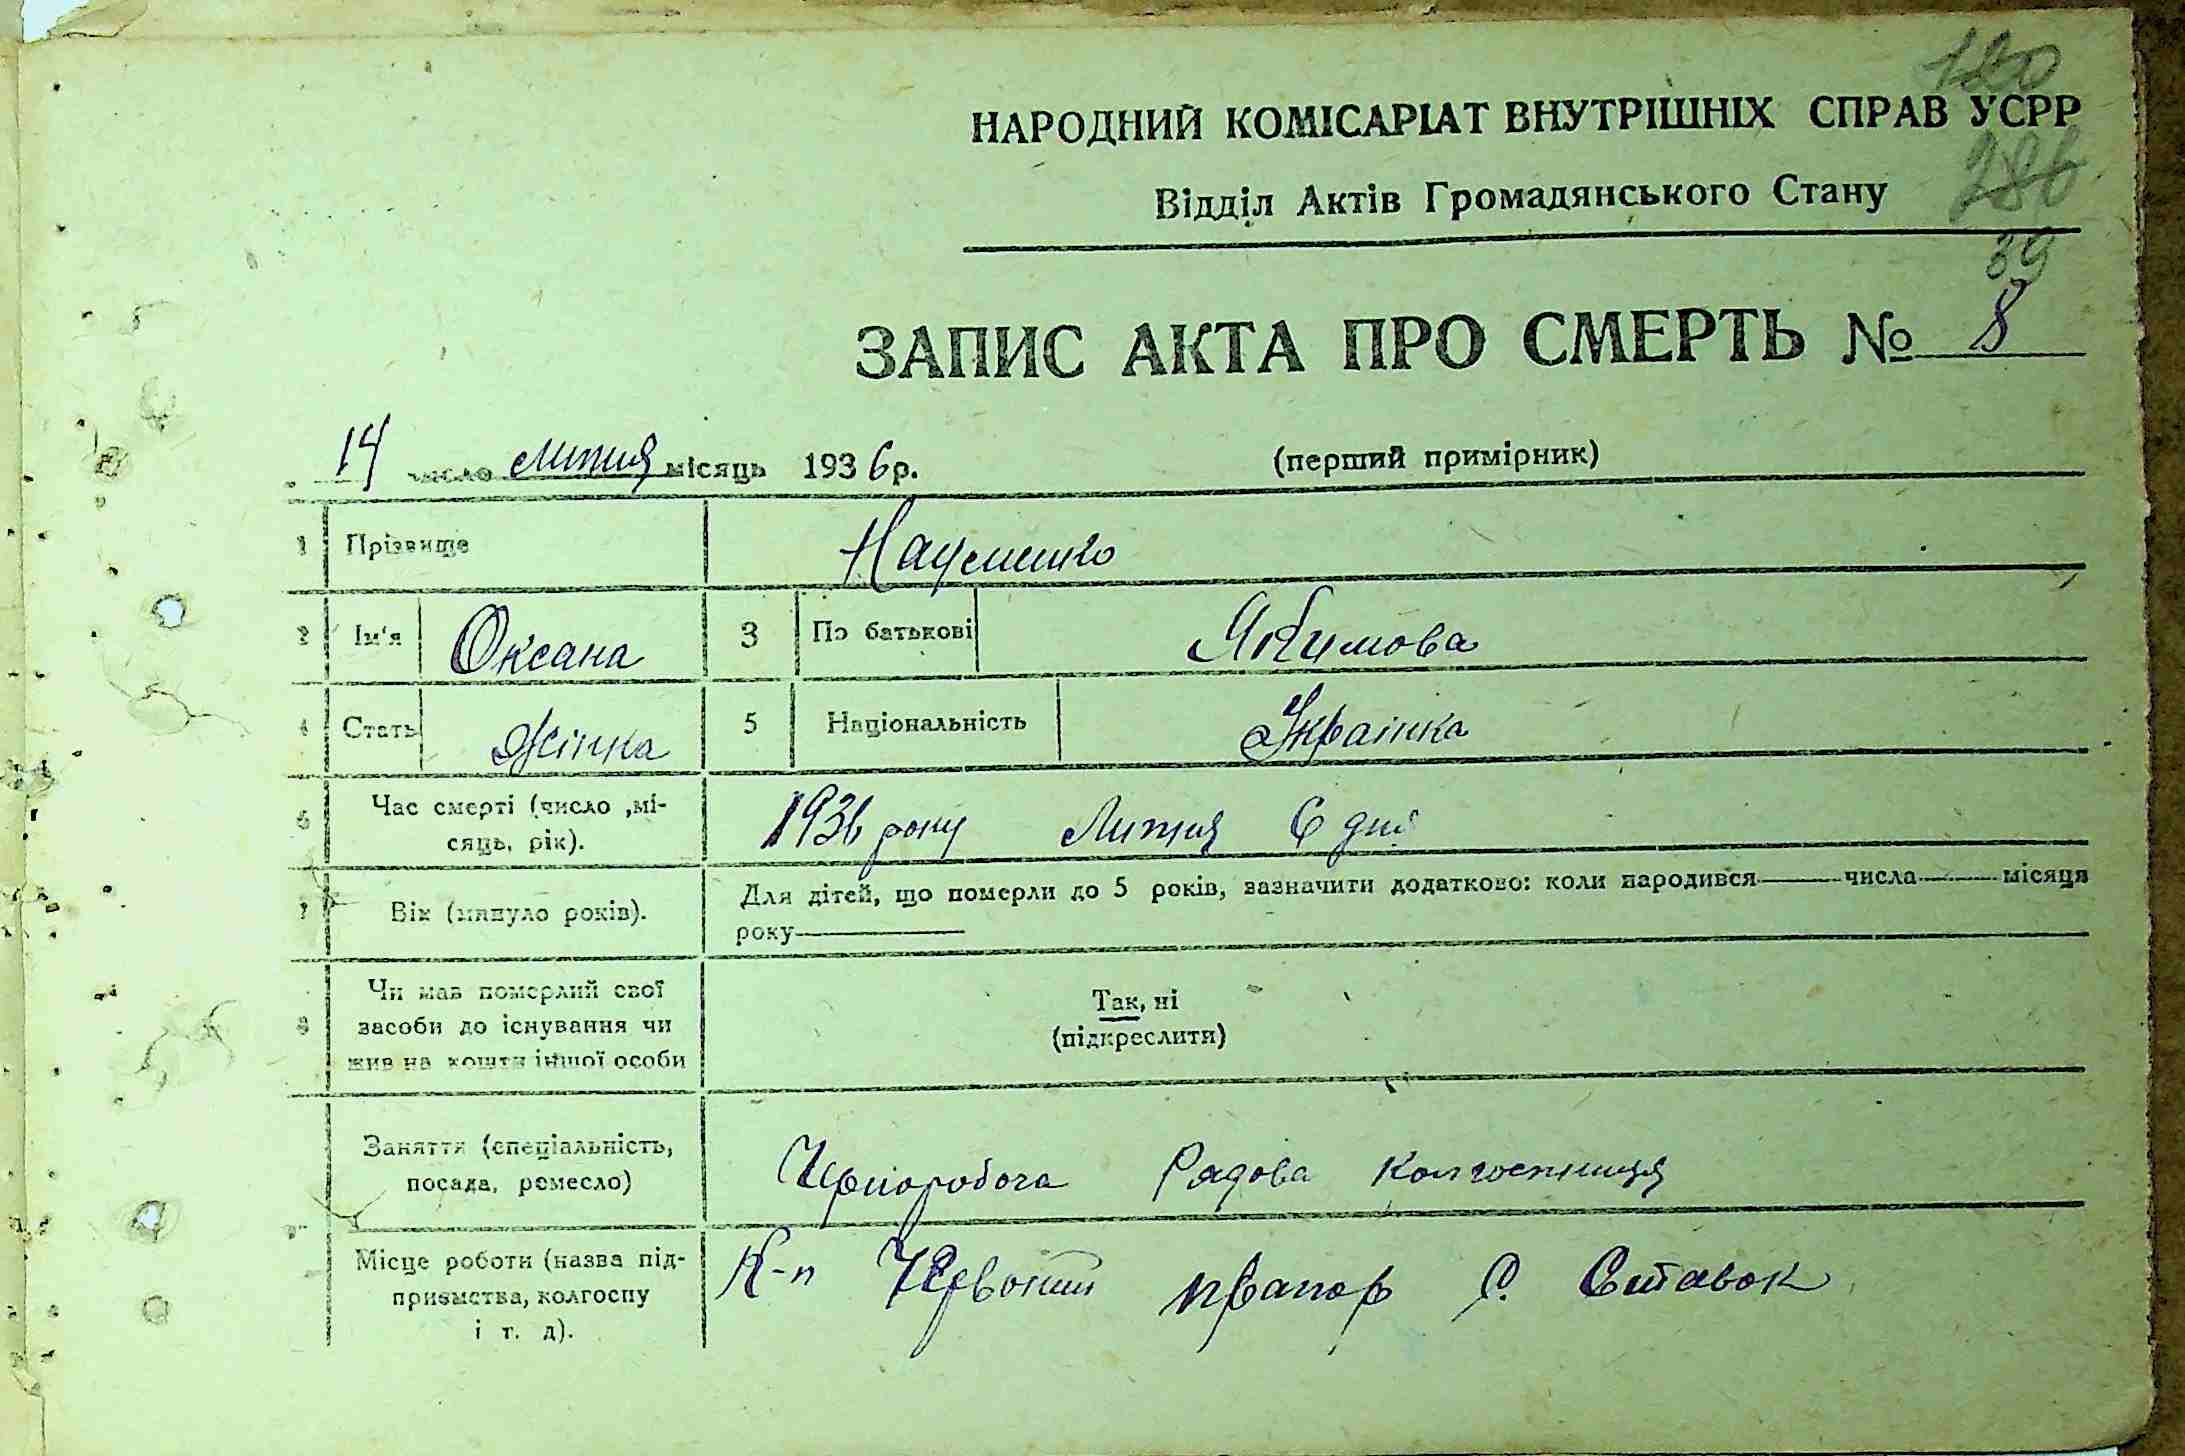 120
НАРОДНИЙ КОМІСАРІАТ ВНУТРІШНІХ СПРАВ УСРР
286
Відділ Актів Громадянського Стану
39
ЗАПИС АКТА ПРО СМЕРТЬ № 8
14 число липня місяць 1936 р. (перший примірник)
1 Прізвище Науменко
2 Ім'я Оксана 3 По батькові Якимова
4 Стать Жінка 5 Національність Українка
6 Час смерті (число ,мі-
сяць, рік). 1936 року Липня 6 дня
7 Вік (минуло років). Для дітей, що померли до 5 років, зазначити додатково: коли народився — числа — місяця
року —
8 Чи мав померлий свої
засоби до існування чи
жив на кошти іншої особи
Так, ні
(підкреслити)
9 Заняття (спеціальність,
посада, ремесло) Чорноробоча Рядова Колгоспниця
Місце роботи (назва під-
приємства, колгоспу
і т. д).
К-п Червоний прапор С. Ставок